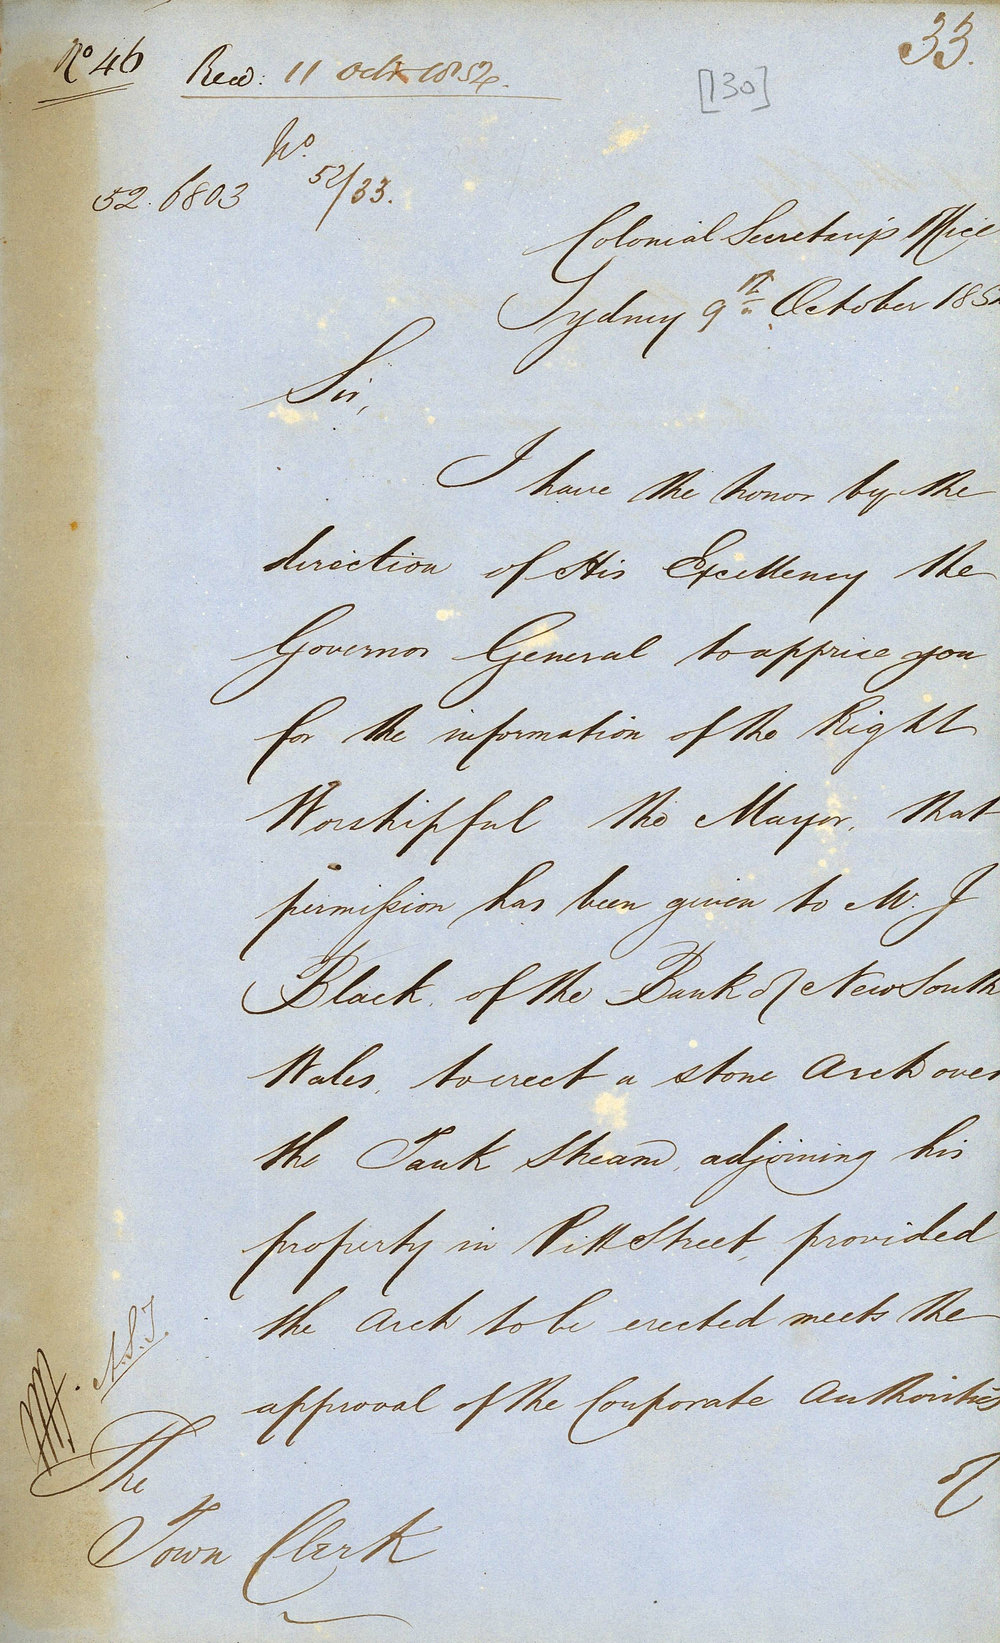 33.
No 46 Recd: 11 Octr 1852.
[130]
No.
52. 6803 52/33.
Colonial Secretary's Office
Sydney 9th October 185
Sir,
I have the honor by the
direction of His Excellency the
Governor General to apprise you
for the information of the Right
Worshipful the Mayor, that
permission has been given to Mr. J
Black, of the Bank of New South
Wales, to erect a stone Arch over
the Tank Stream, adjoining his
property in Pitt Street, provided
the Arch to be erected meets the
approval of the Corporate Authorities
of
The
Town Clerk